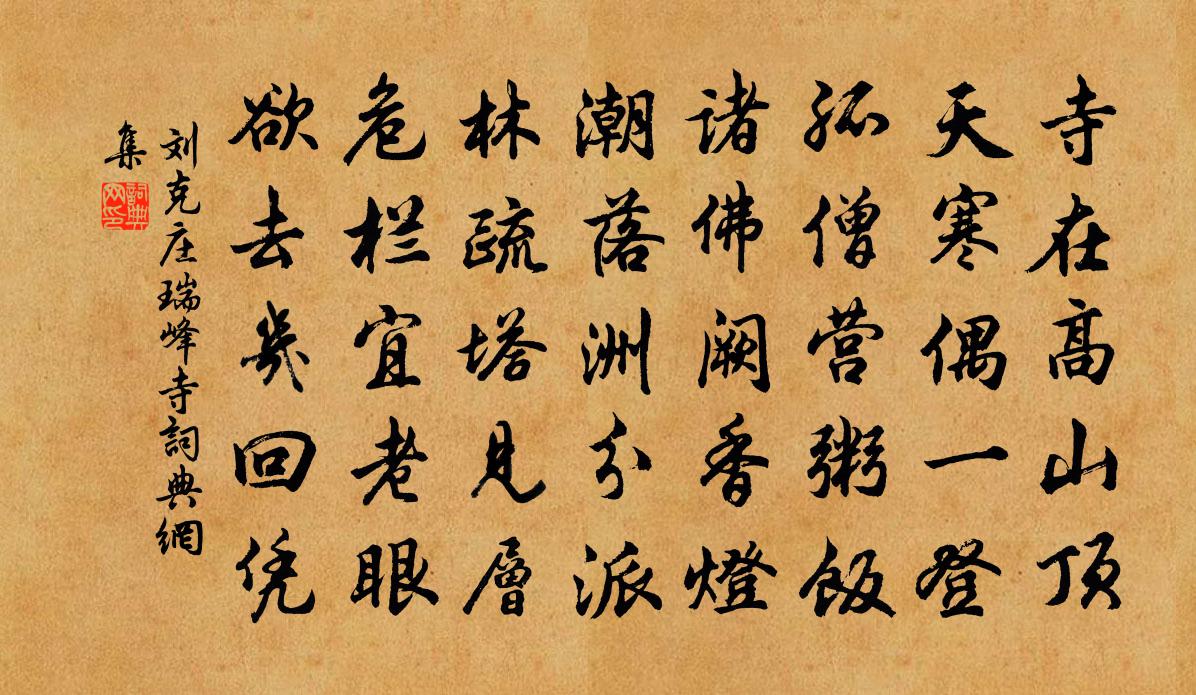 寺在高山顶
天寒偶一登
孤僧营粥飯
诸佛阙香燈
潮落洲分派
林疏塔见層
危栏宜老眼
欲去幾回凭
刘克庄瑞峰寺詞典網
集
詞典
网印